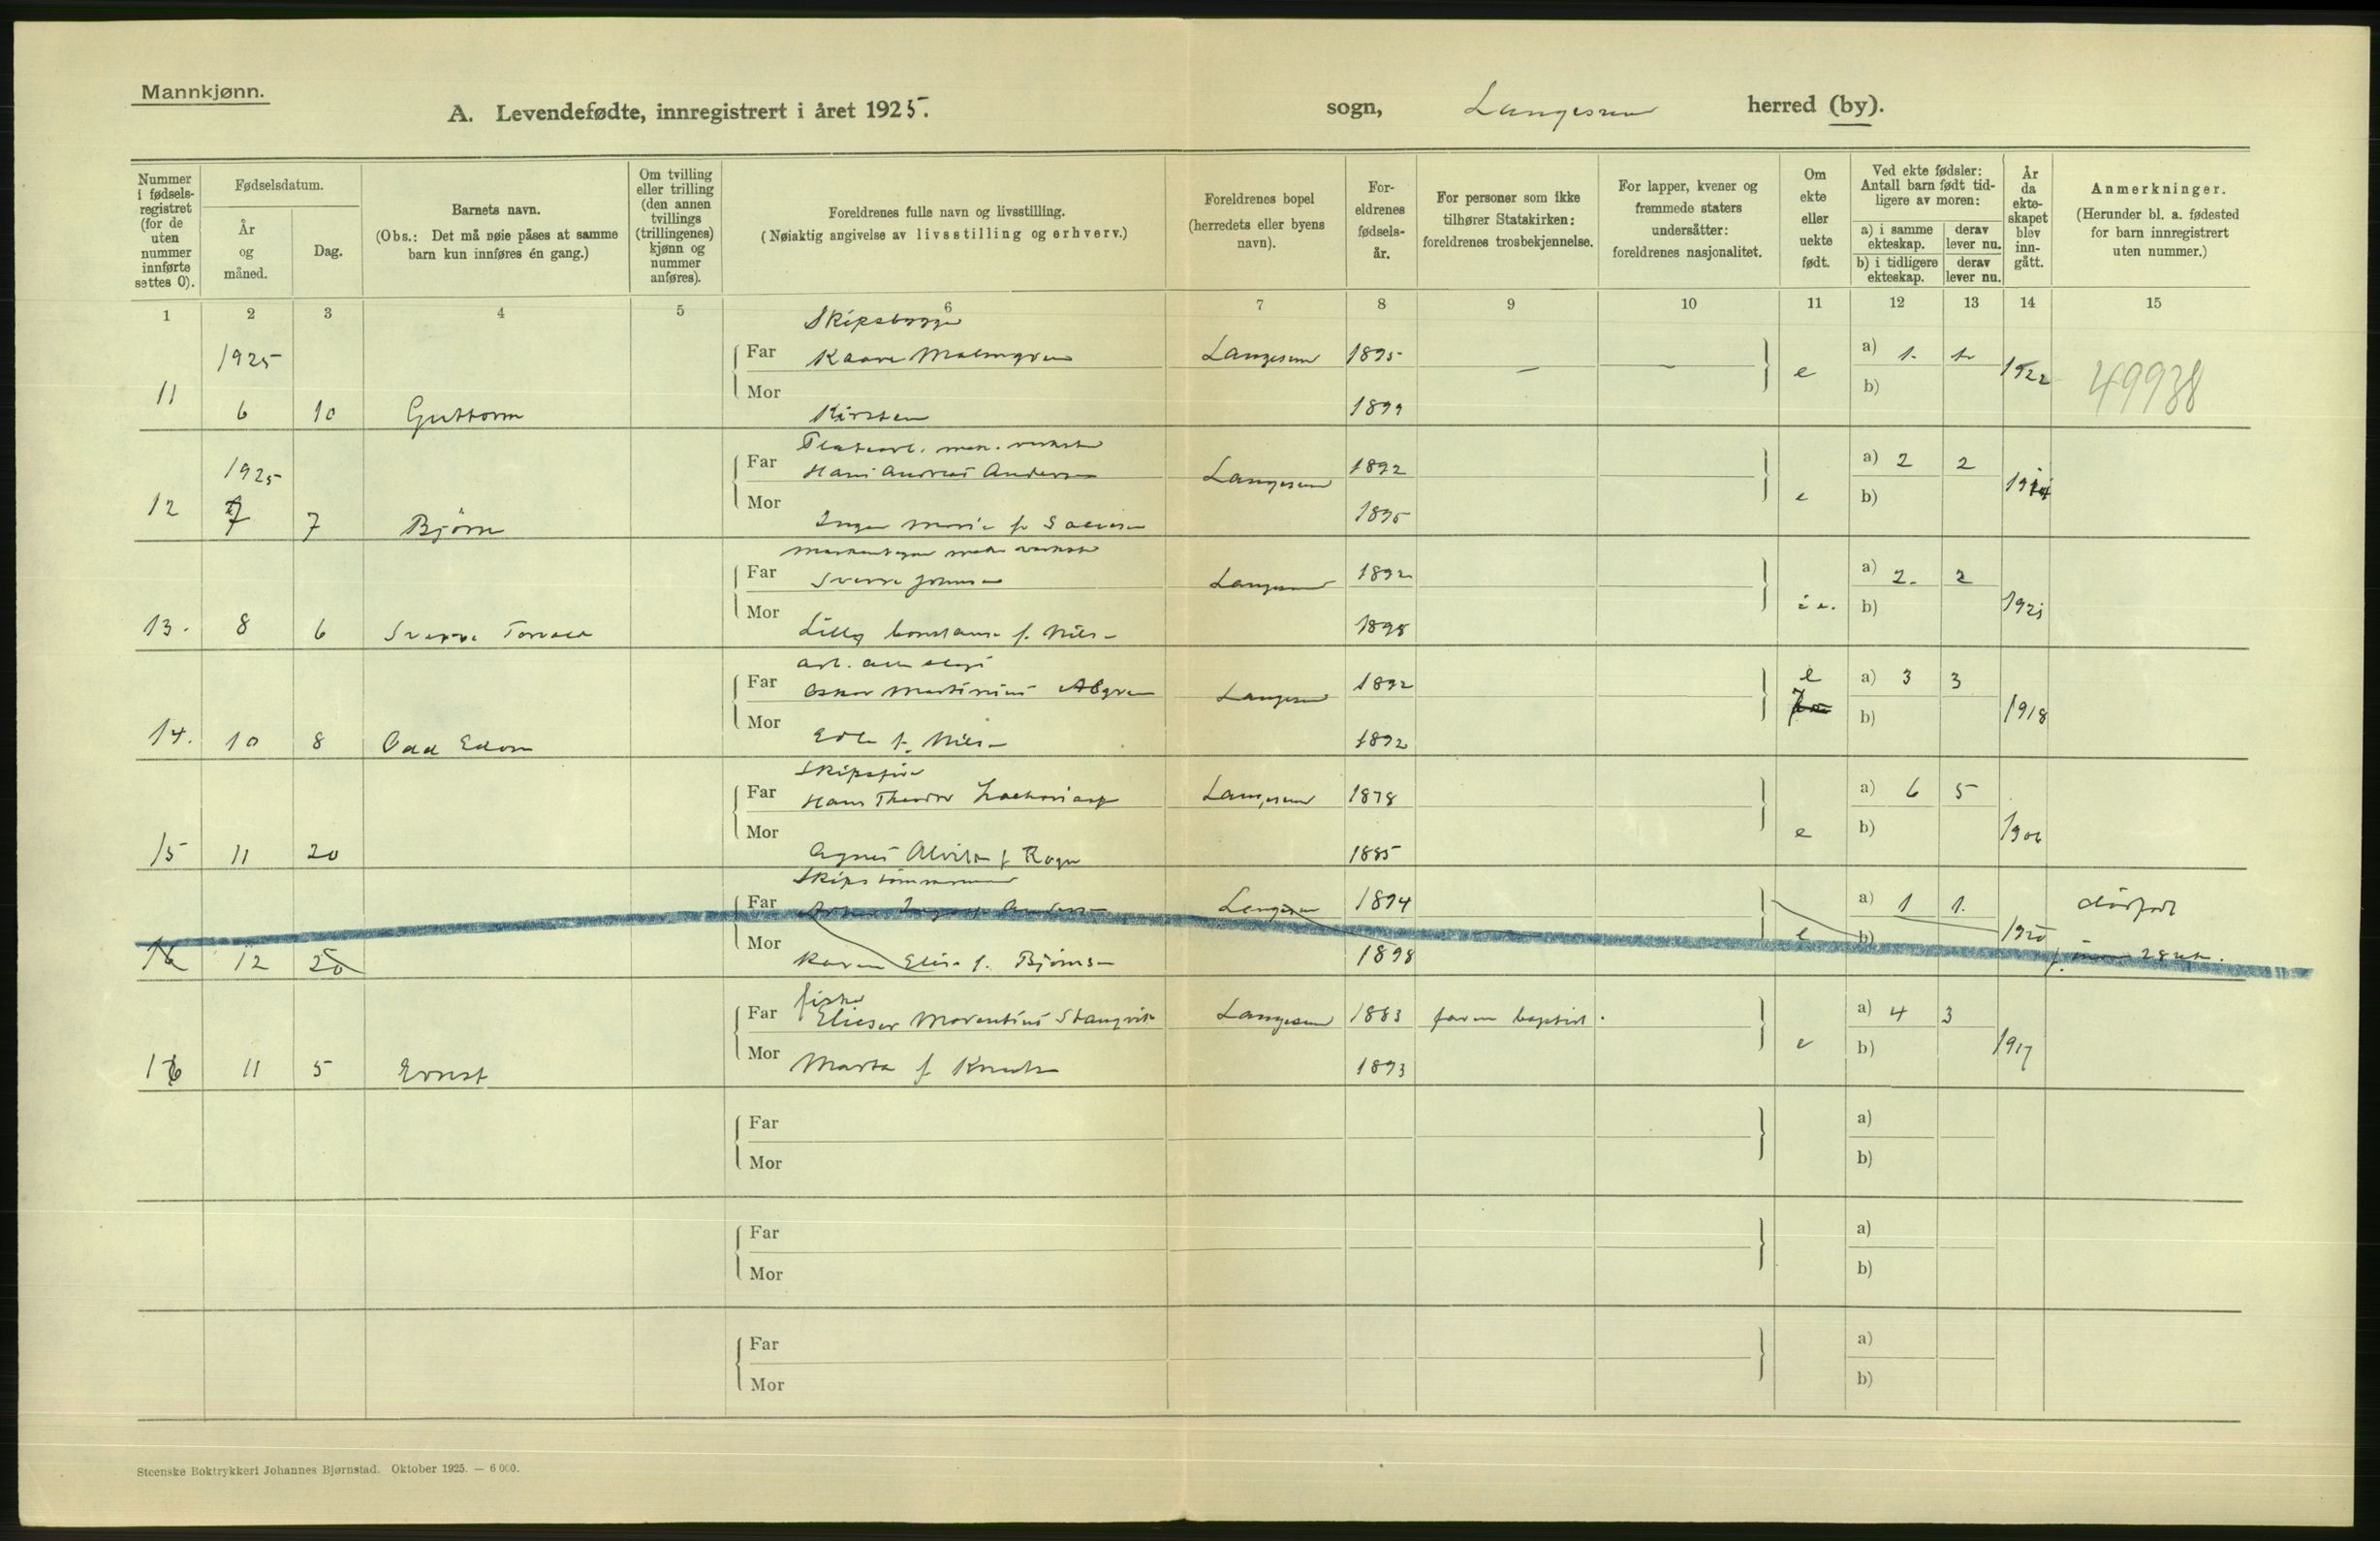 Mannkjønn.
A. Levendefødte, innregistrert i året 1925. sogn, Langesund herred (by).
Nummer i fødsels-registret (for de uten nummer innførte settes 0).
Fødselsdatum.
År og måned.
Dag.
Barnets navn.
(Obs.: Det må nøie påses at samme barn kun innføres én gang.)
Om tvilling eller trilling (den annen tvillings (trillingenes) kjønn og nummer anføres).
Foreldrenes fulle navn og livsstilling.
(Nøiaktig angivelse av livsstilling og erhverv.)
Foreldrenes bopel (herredets eller byens navn).
For-eldrenes fødsels-år.
For personer som ikke tilhører Statskirken: foreldrenes trosbekjennelse.
For lapper, kvener og fremmede staters undersåtter: foreldrenes nasjonalitet.
Om ekte eller uekte født.
Ved ekte fødsler: Antall barn født tid-ligere av moren:
a) i samme ekteskap.
derav lever nu.
b) i tidligere ekteskap.
derav lever nu.
År da ekte-skapet blev inn-gått.
Anmerkninger.
(Herunder bl. a. fødested for barn innregistrert uten nummer.)
1 2 3 4 5 6 7 8 9 10 11 12 13 14 15
Skipsbygger
1925 Far Kaare Malmgren Langesund 1895 — — a) 1. 1. 1922 49938
11 6 10 Guttorm Mor Kirsten 1899 e b)
1925 Far Hans Andreas Andersen Langesund 1892 a) 2 2
12 7 7 Bjørn Mor Inger Marie f. 1895 e b)
Far Sverre Johnsen Langesund 1892 a) 2. 2 1921
13. 8 6 Mor Lilly f. Nils- 1898 b)
Far Oskar Martinius Langesund 1892 e a) 3 3 1918
14. 10 8 Odd Mor f. Nils- 1892 b)
Skipsfører
Far Hans Theodor Zachariasen Langesund 1878 a) 6 5 1906
15 11 20 Mor Agnes f. 1885 e b)
Skipstømmermann
Far Andersen Langesund 1894 a) 1 1. dødfødt
16 12 20 Mor Karen f. Bjørns- 1898 e b) 1920 28 uk.
fisker
Far Elieser Morentius Stangvik Langesund 1883 faren baptist. a) 4 3 1917
16 11 5 Ernst Mor Marta f. 1893 e b)
Far a)
Mor b)
Far a)
Mor b)
Far a)
Mor b)
Steenske Boktrykkeri Johannes Bjørnstad. Oktober 1925. — 6 000.